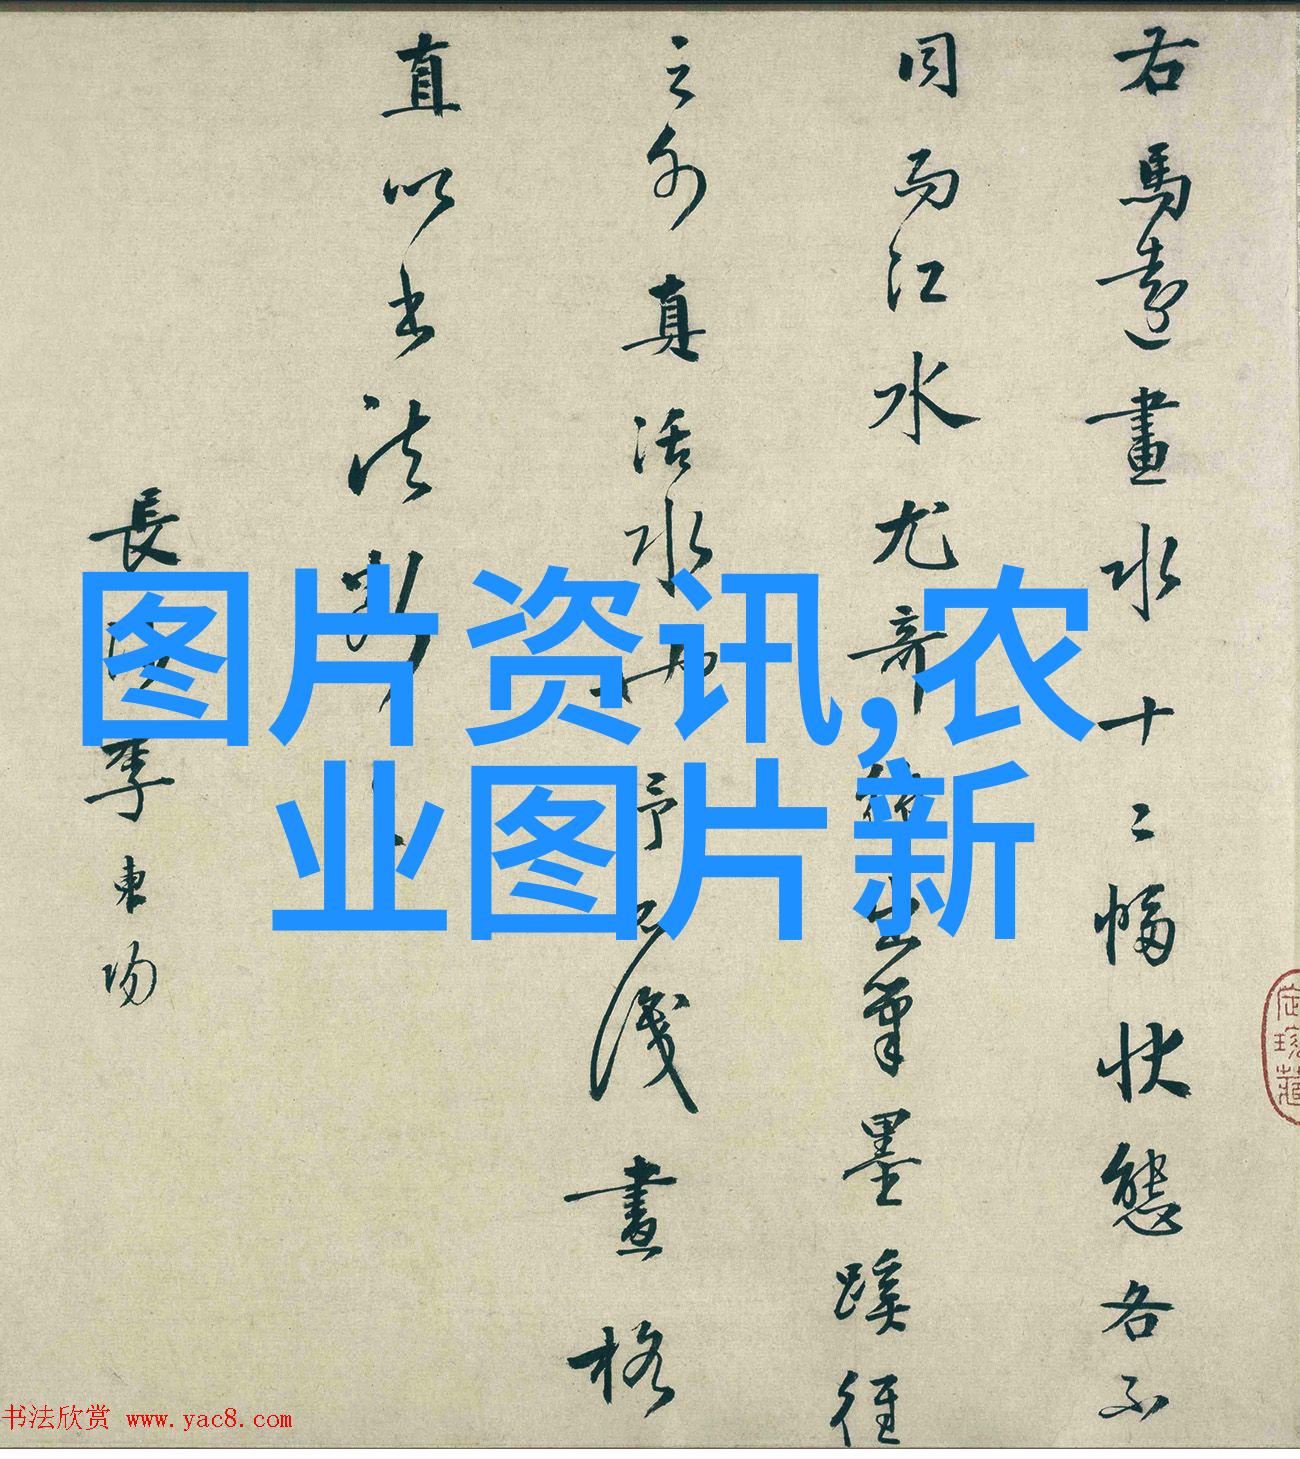 右馬遠畫水十二幅狀態各不
同而江水尤奇出筆墨蹊徑
之外真活水也予不識畫格
直以書法
長沙李東陽
图片资讯,农
业图片新
书法欣赏 www.yac8.com